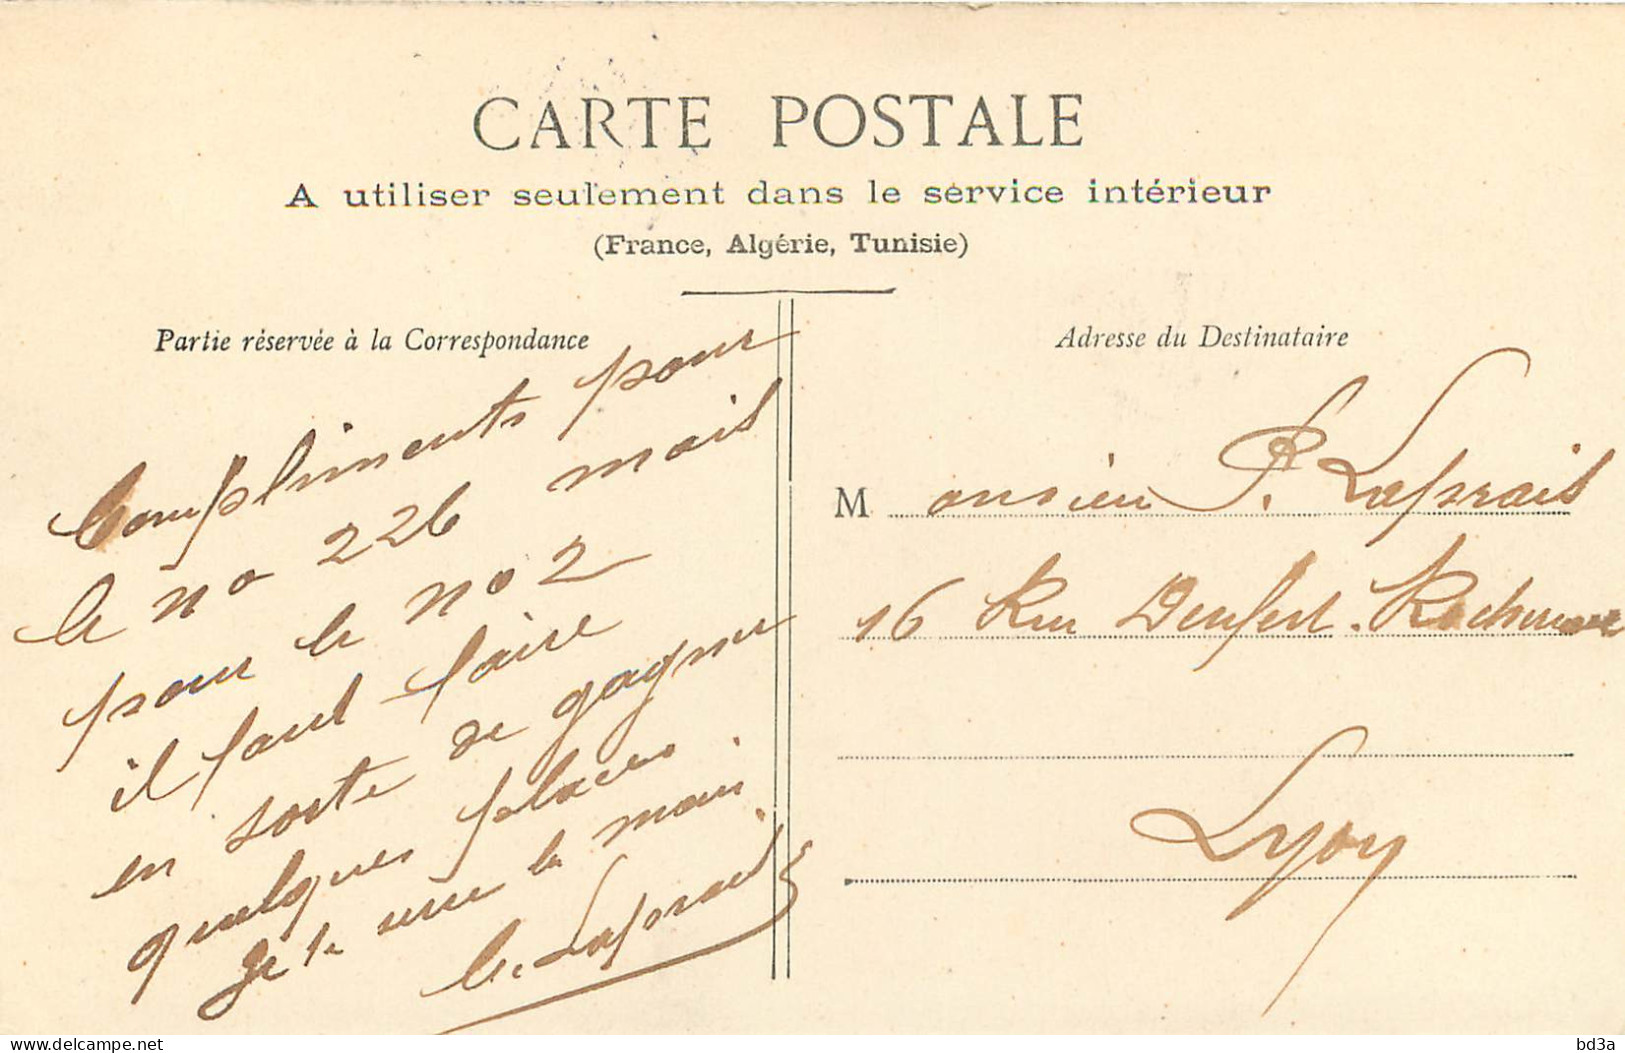 CARTE POSTALE
A utiliser seulement dans le service intérieur
(France, Algérie, Tunisie)
Partie réservée à la Correspondance
Compliments pour
le no 226 mais
pour le no 2
il faut faire
en sorte de gagner
quelques places
Je te serre la main
C. Laprais
Adresse du Destinataire
Monsieur P. Laprais
16 Rue Denfert-Rochereau
Lyon
delcampe.net
bd3a